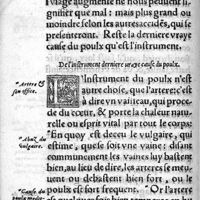 vsage augmente ne nous peuuent si-
gnifier que mal: mais plus grand ou
moindre selon les autres accidẽs, qui se
presenteront. Reste la derniere vraye
cause du poulx qui est l'instrument.
De l'instrument derniere vraye cause du poulx.
L'Instrument du poulx n'est
autre chose, que l'artere: c'est
à dire vn vaisseau, qui procede
du cœur, & porte la chaleur natu-
relle ou esprit vital par tout le corps.
"En quoy est deceu le vulgaire, qui
estime, que ce soit vne vaine: disant
communement les vaines luy bastent
bien, au lieu de dire, les arteres se meu-
uent ou debastent bien fort, ou le
poulx est fort frequent. "Or l'artere
"Artere &
son office.
"Abuz du
vulgaire.
"Cause du